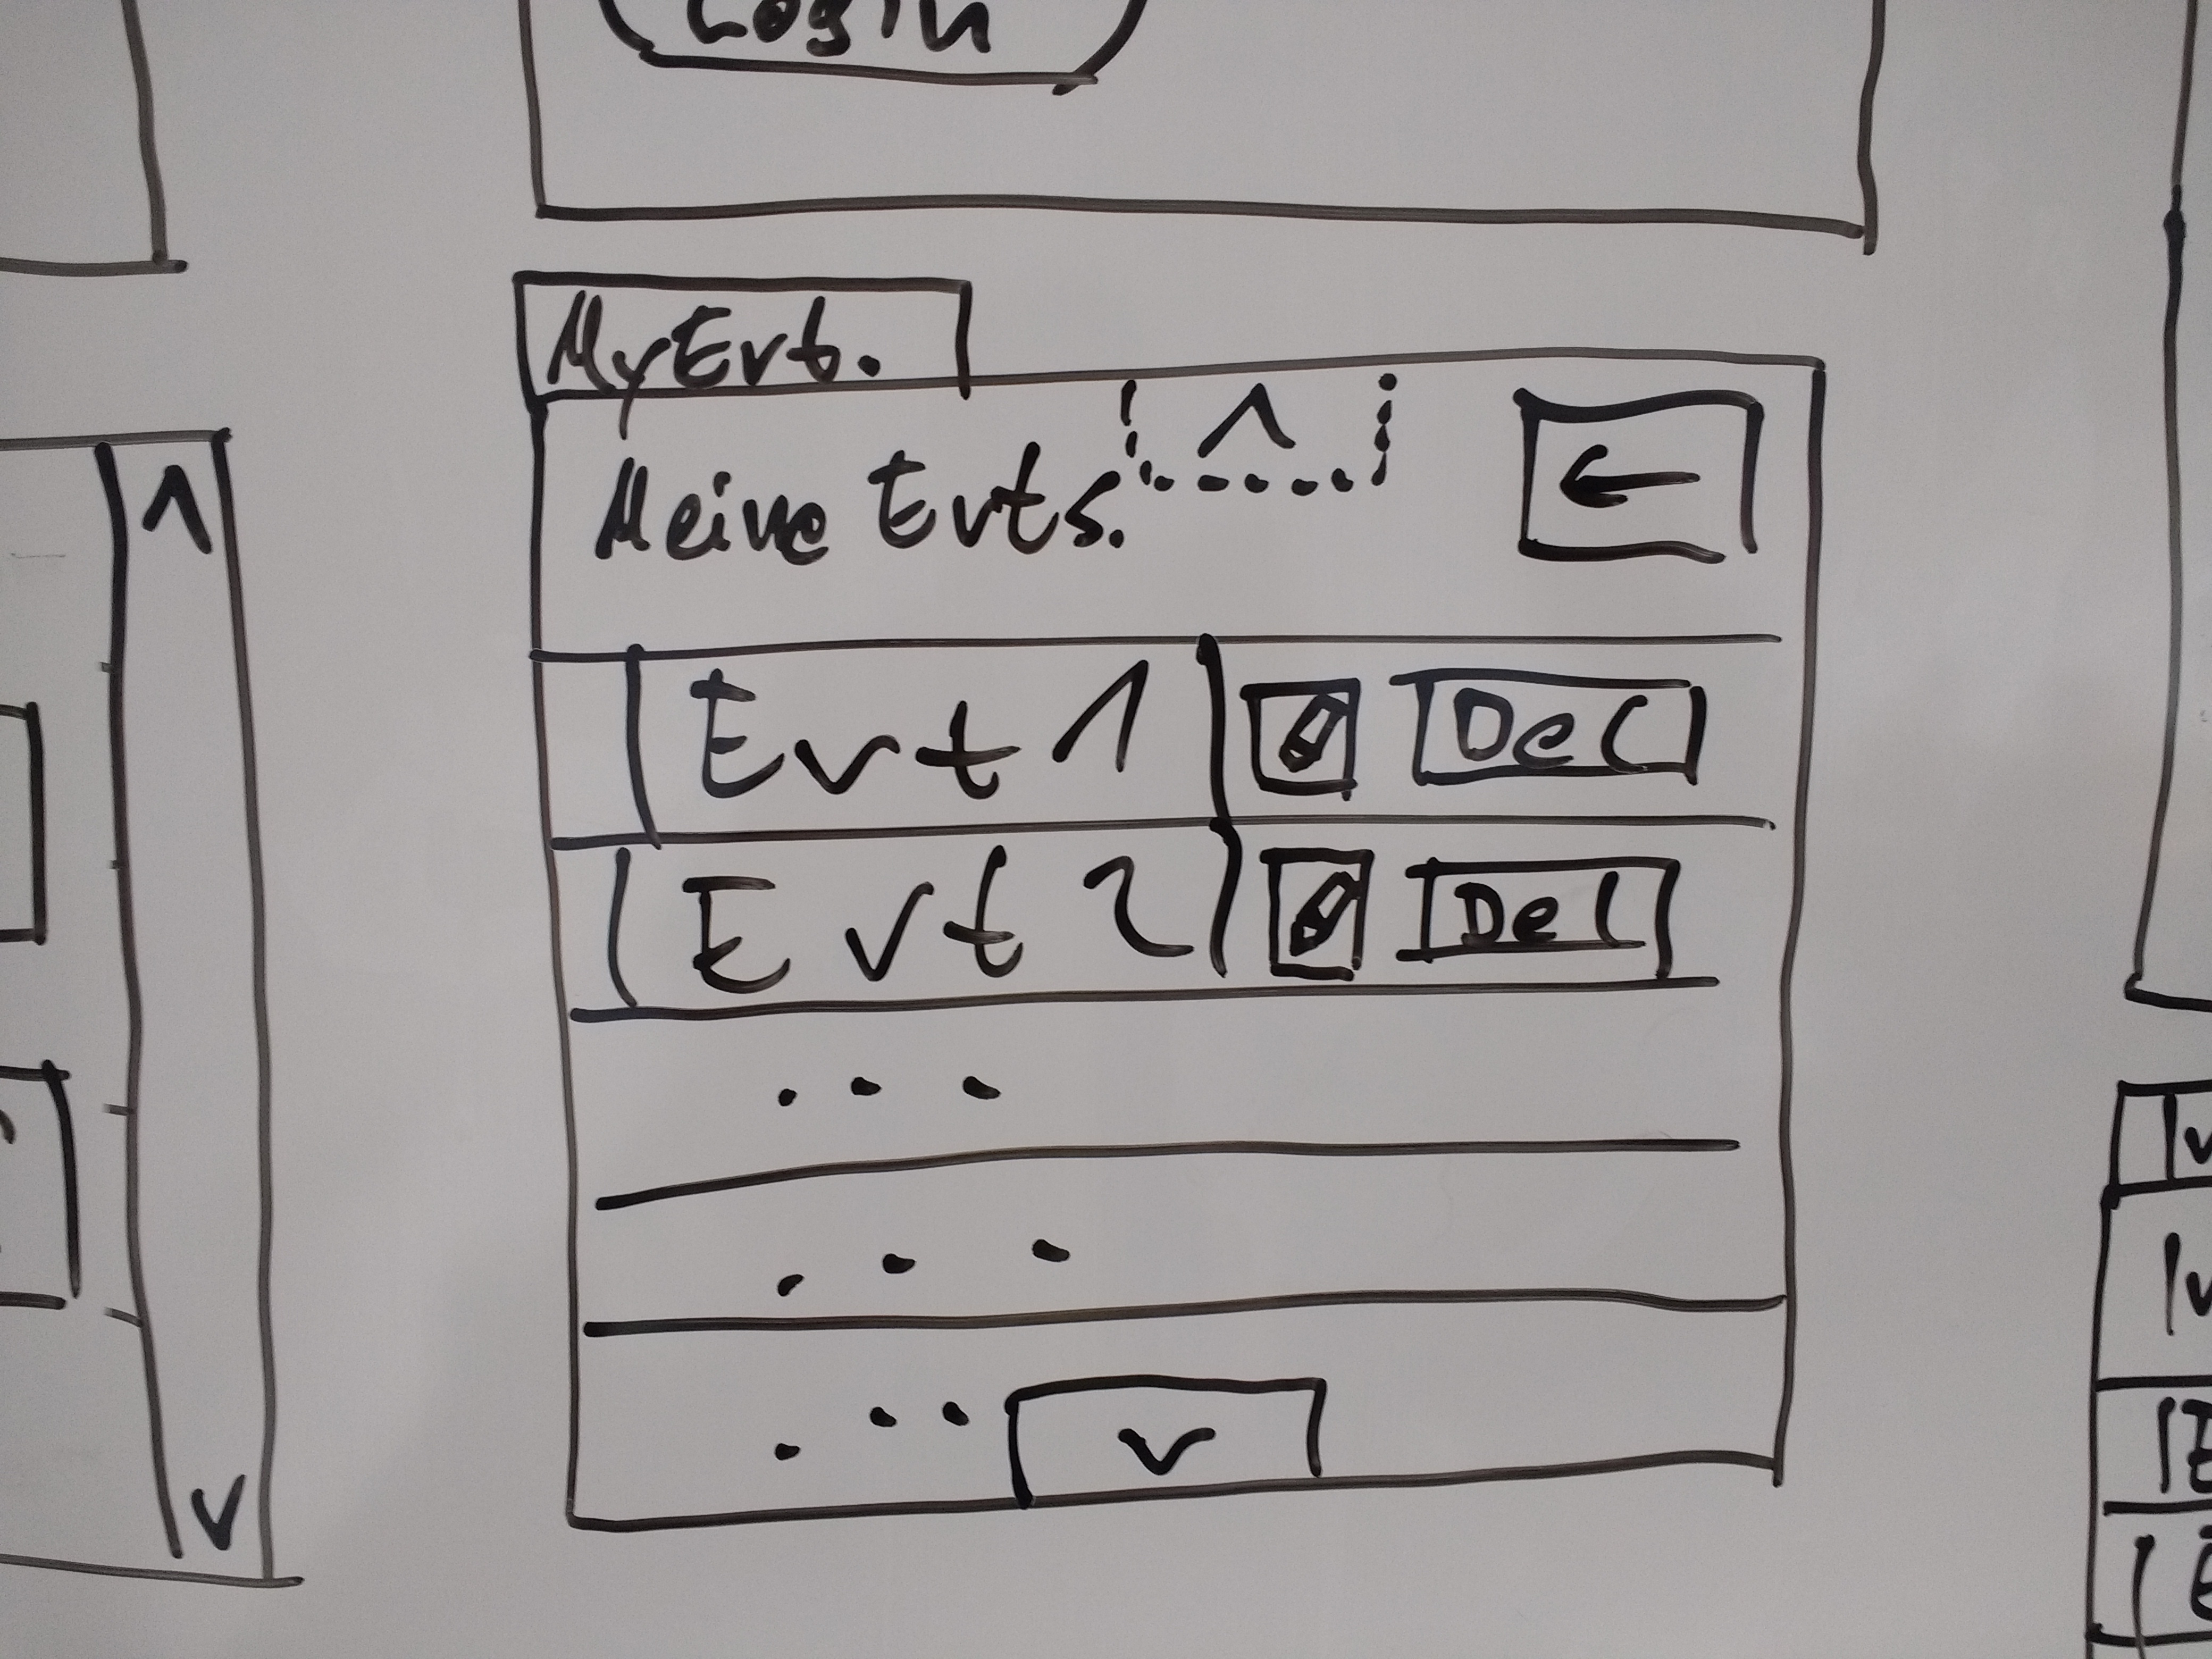 Login
MyEvt.
^
Meine Evts.
←
Evt 1 Del
Evt 2 Del
...
...
...
v